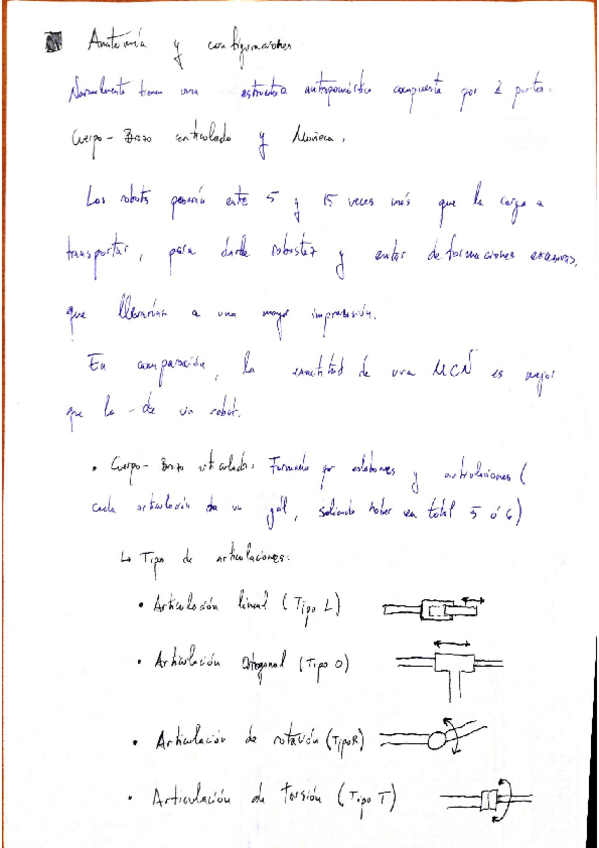 Anatomía y configuraciones
Normalmente tienen una estructura antropomórfica compuesta por 2 partes.
Cuerpo-Brazo articulado y Muñeca.
Los robots pesarán entre 5 y 15 veces más que la carga a
transportar, para darle robustez y evitar deformaciones excesivas,
que llevarían a una mayor imprecisión.
En comparación, la exactitud de una MCN es mejor
que la de un robot.
• Cuerpo-Brazo articulado: Formado por eslabones y articulaciones (
cada articulación da un gdl, soliendo haber en total 5 ó 6)
↳ Tipos de articulaciones:
• Articulación lineal (Tipo L)
• Articulación Ortogonal (Tipo O)
• Articulación de rotación (Tipo R)
• Articulación de torsión (Tipo T)